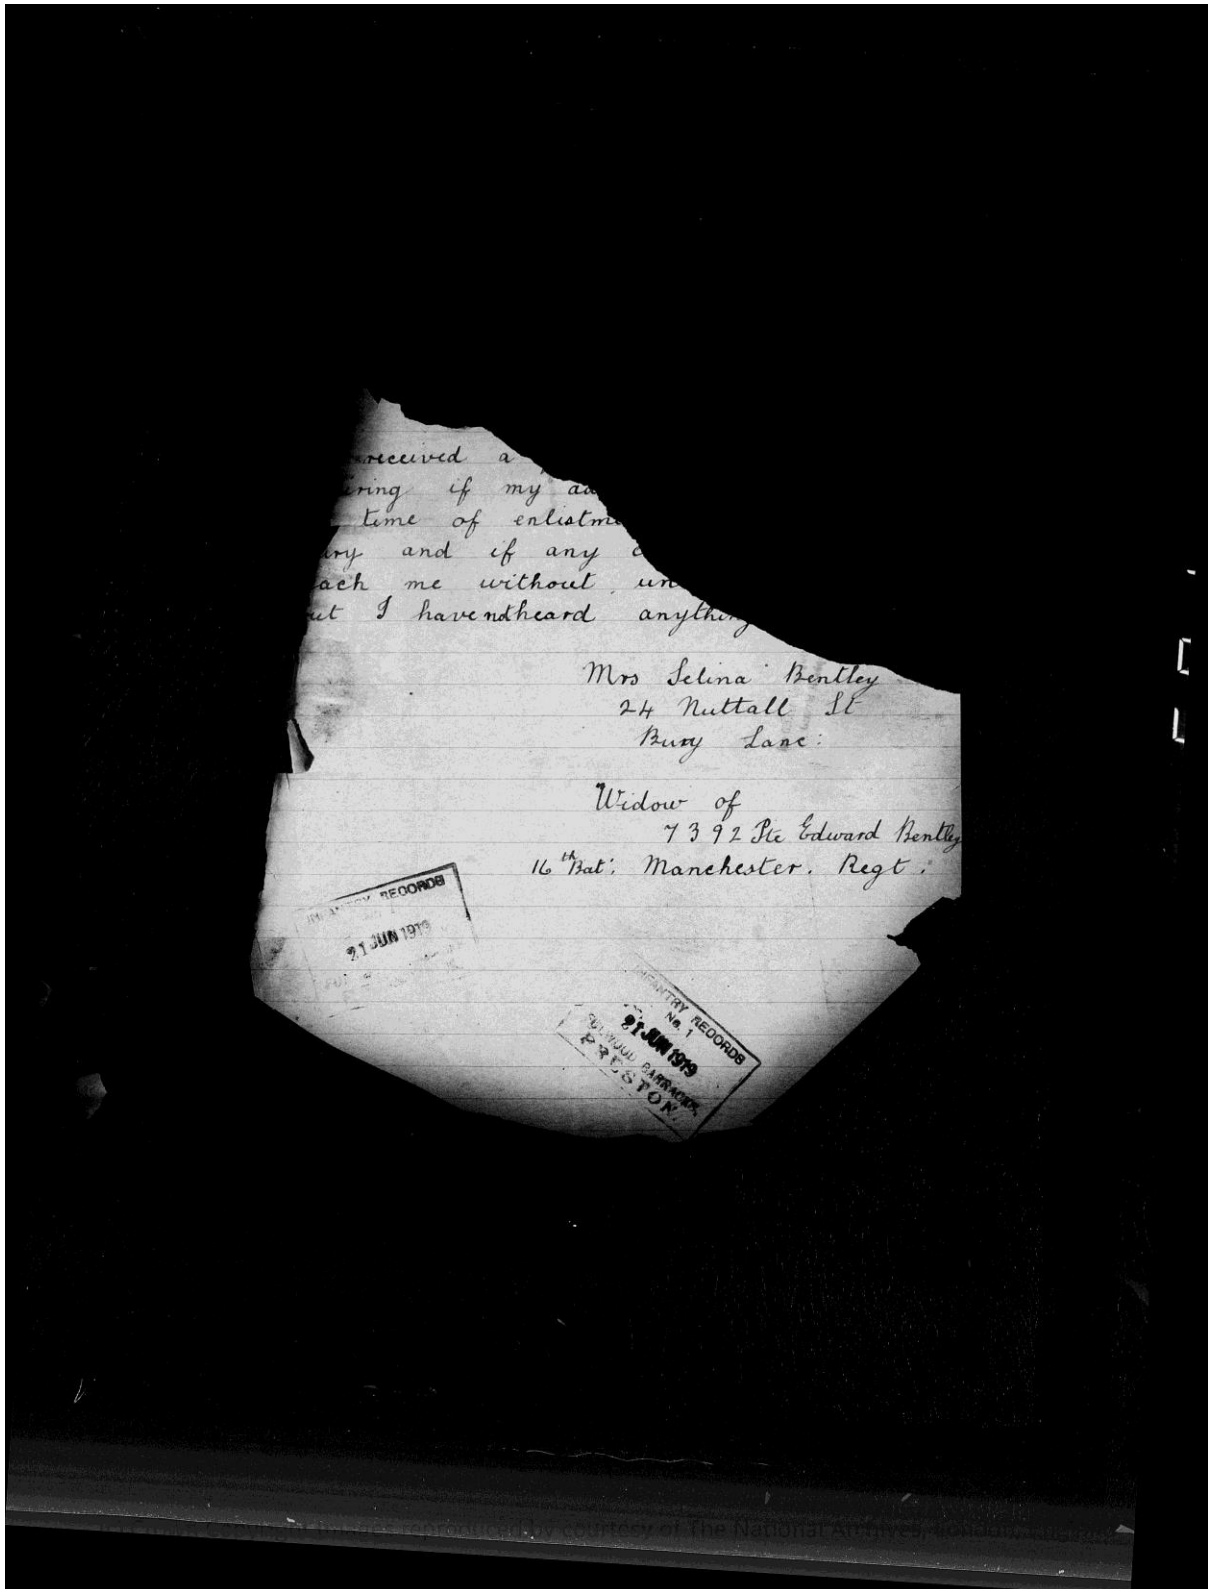 received a
ring if my ad
time of enlistme
ary and if any c
ach me without un
ut I havenotheard anything
Mrs Selina Bentley
24 Nuttall St
Bury Lanc:
Widow of
7392 Pte Edward Bentley
16th Bat: Manchester. Regt:
INFANTRY RECORDS
21 JUN 1919
INFANTRY RECORDS
No. 1
21 JUN 1919
FULWOOD BARRACKS,
PRESTON.
(c) Crown Copyright Images reproduced by courtesy of The National Archives, London, England.